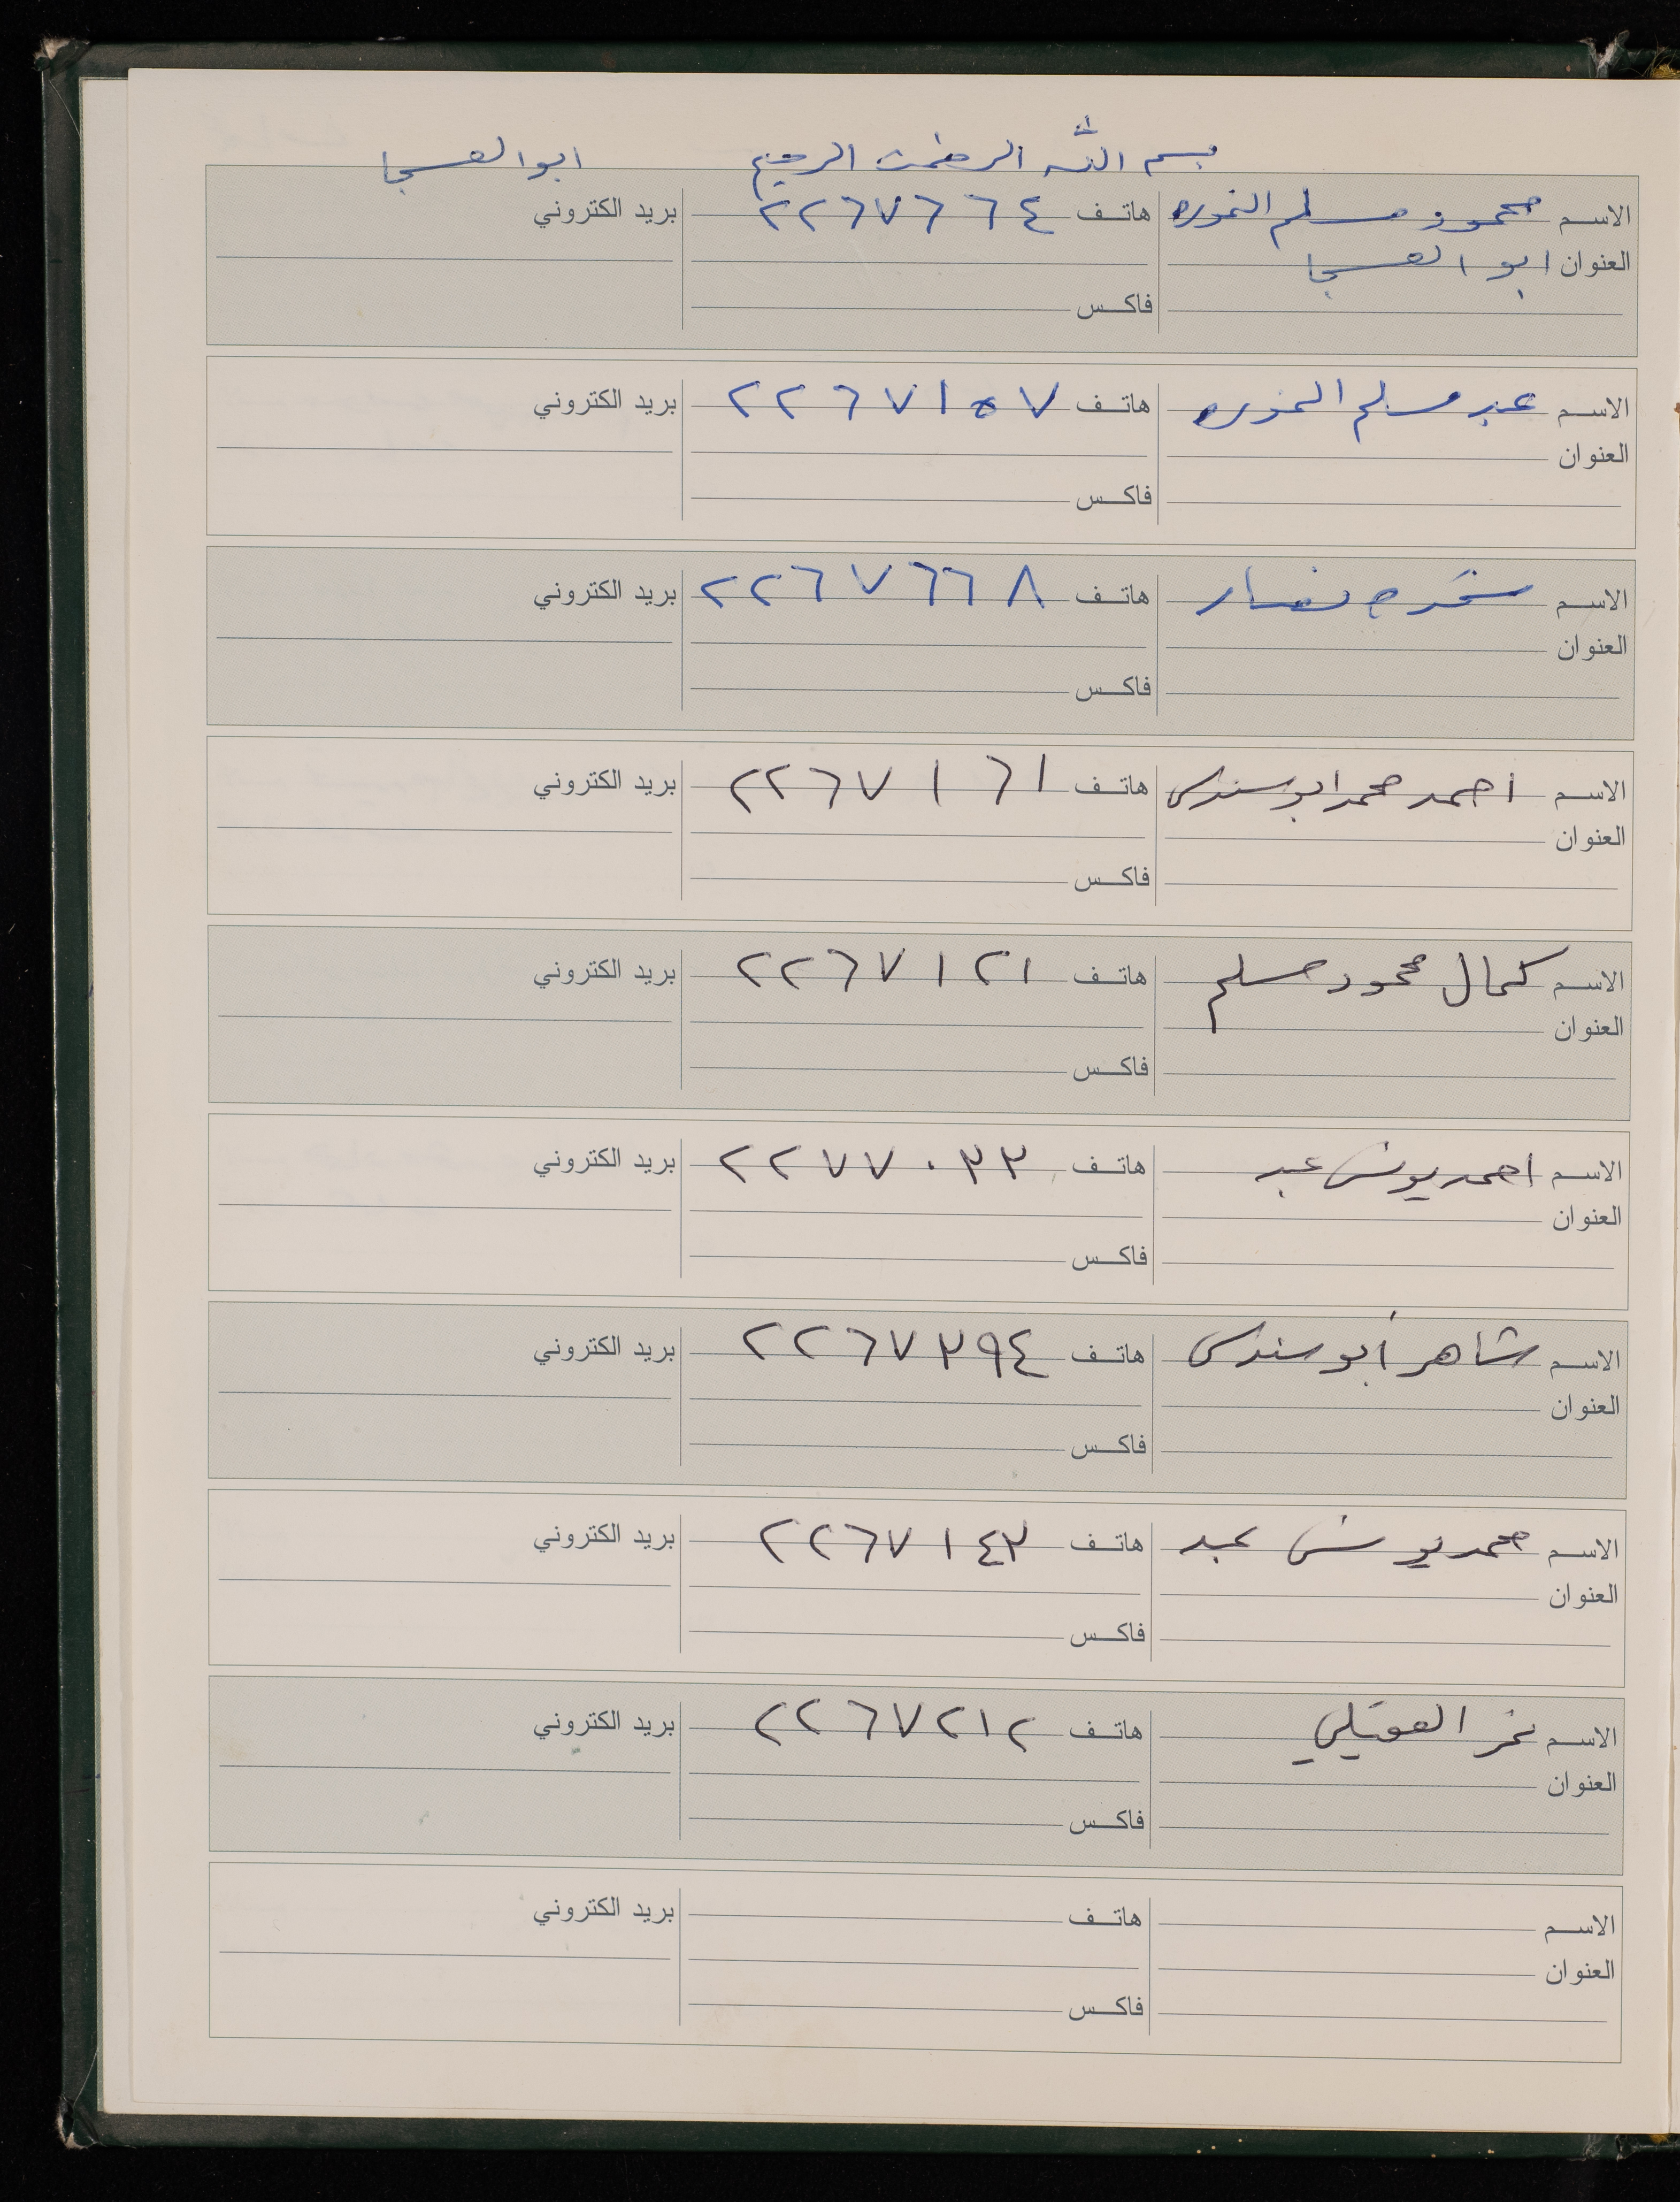 بسم الله الرحمن الرحيم ابو العسجا
الاسم محمود مسلم النموره هاتف ٢٢٦٧٦٦٤ بريد الكتروني
العنوان ابو العسجا
فاكس
الاسم عبد مسلم النموره هاتف ٢٢٦٧١٥٧ بريد الكتروني
العنوان
فاكس
الاسم نصار هاتف ٢٢٦٧٦٦٨ بريد الكتروني
العنوان
فاكس
الاسم احمد محمد ابو سندس هاتف ٢٢٦٧١٦١ بريد الكتروني
العنوان
فاكس
الاسم كمال محمود مسلم هاتف ٢٢٦٧١٢١ بريد الكتروني
العنوان
فاكس
الاسم احمد يونس عبد هاتف ٢٢٧٧٠٣٣ بريد الكتروني
العنوان
فاكس
الاسم شاهر أبو سندس هاتف ٢٢٦٧٣٩٤ بريد الكتروني
العنوان
فاكس
الاسم محمد يونس عبد هاتف ٢٢٦٧١٤٣ بريد الكتروني
العنوان
فاكس
الاسم نمر العقيلي هاتف ٢٢٦٧٢١٢ بريد الكتروني
العنوان
فاكس
الاسم هاتف بريد الكتروني
العنوان
فاكس